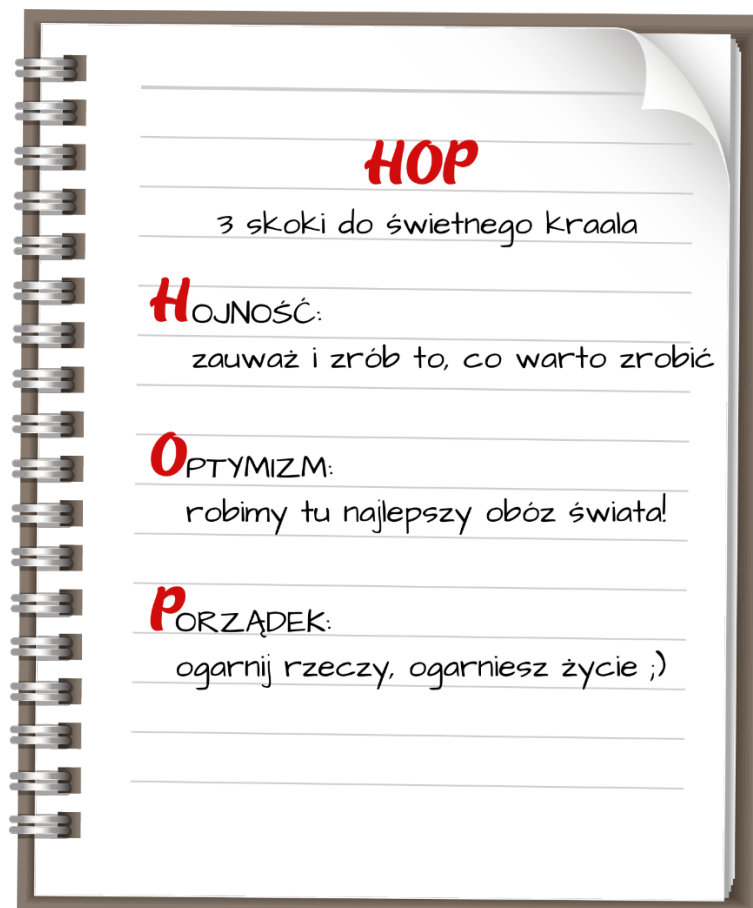 HOP
3 skoki do świetnego kraala
HOJNOŚĆ:
zauważ i zrób to, co warto zrobić
OPTYMIZM:
robimy tu najlepszy obóz świata!
PORZĄDEK:
ogarnij rzeczy, ogarniesz życie ;)